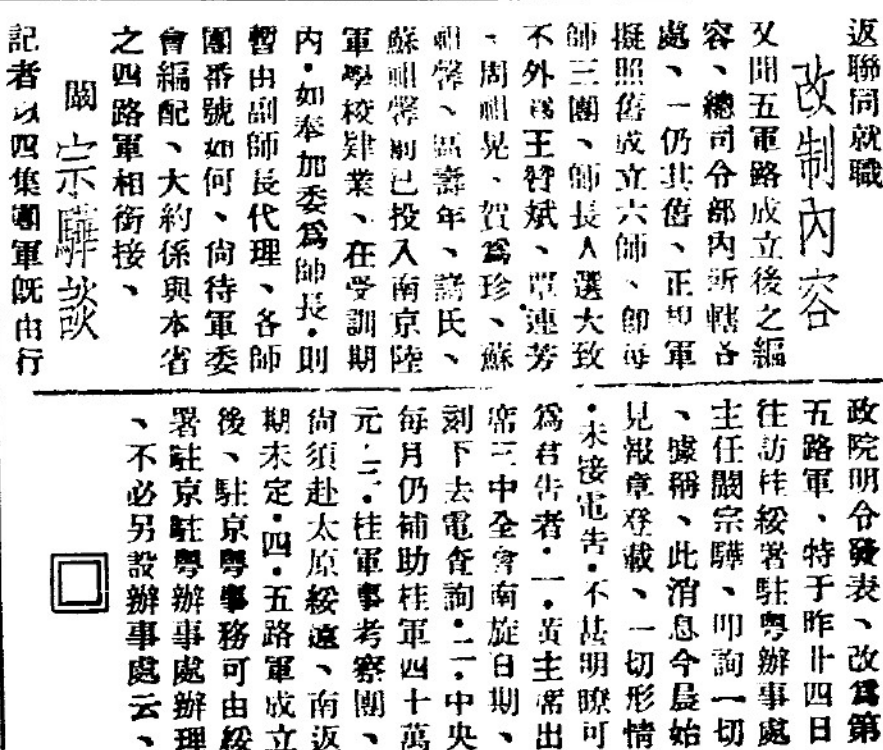 返聯同就職
改制內容
又聞五軍路成立後之編
容、總司令部內所轄各
處、一仍其舊、正却軍
擬照舊成立六師、卽每
師三團、師長人選大致
不外爲王贊斌、覃連芳
、周祖晃、賀爲珍、蘇
祖馨、區壽年、諸氏、
蘇祖馨前已投入南京陸
軍學校肄業、在受訓期
內・如奉加委爲師長・則
暫由副師長代理、各師
團番號如何、尙待軍委
會編配、大約係與本省
之四路軍相銜接、
闞宗驊談
記者以四集團軍旣由行
政院明令發表、改爲第
五路軍、特于昨卄四日
往訪桂綏署駐粵辦事處
主任闞宗驊、叩詢一切
、據稱、此消息今晨始
見報章登載、一切形情
・未接電吿・不甚明瞭可
爲君吿者・一・黃主席出
席三中全會南旋日期、
刻下去電查詢・二・中央
每月仍補助桂軍四十萬
元・三・桂軍事考察團、
尙須赴太原綏遠、南返
期未定・四・五路軍成立
後、駐京粵事務可由綏
署駐京駐粵辦事處辦理
、不必另設辦事處云、